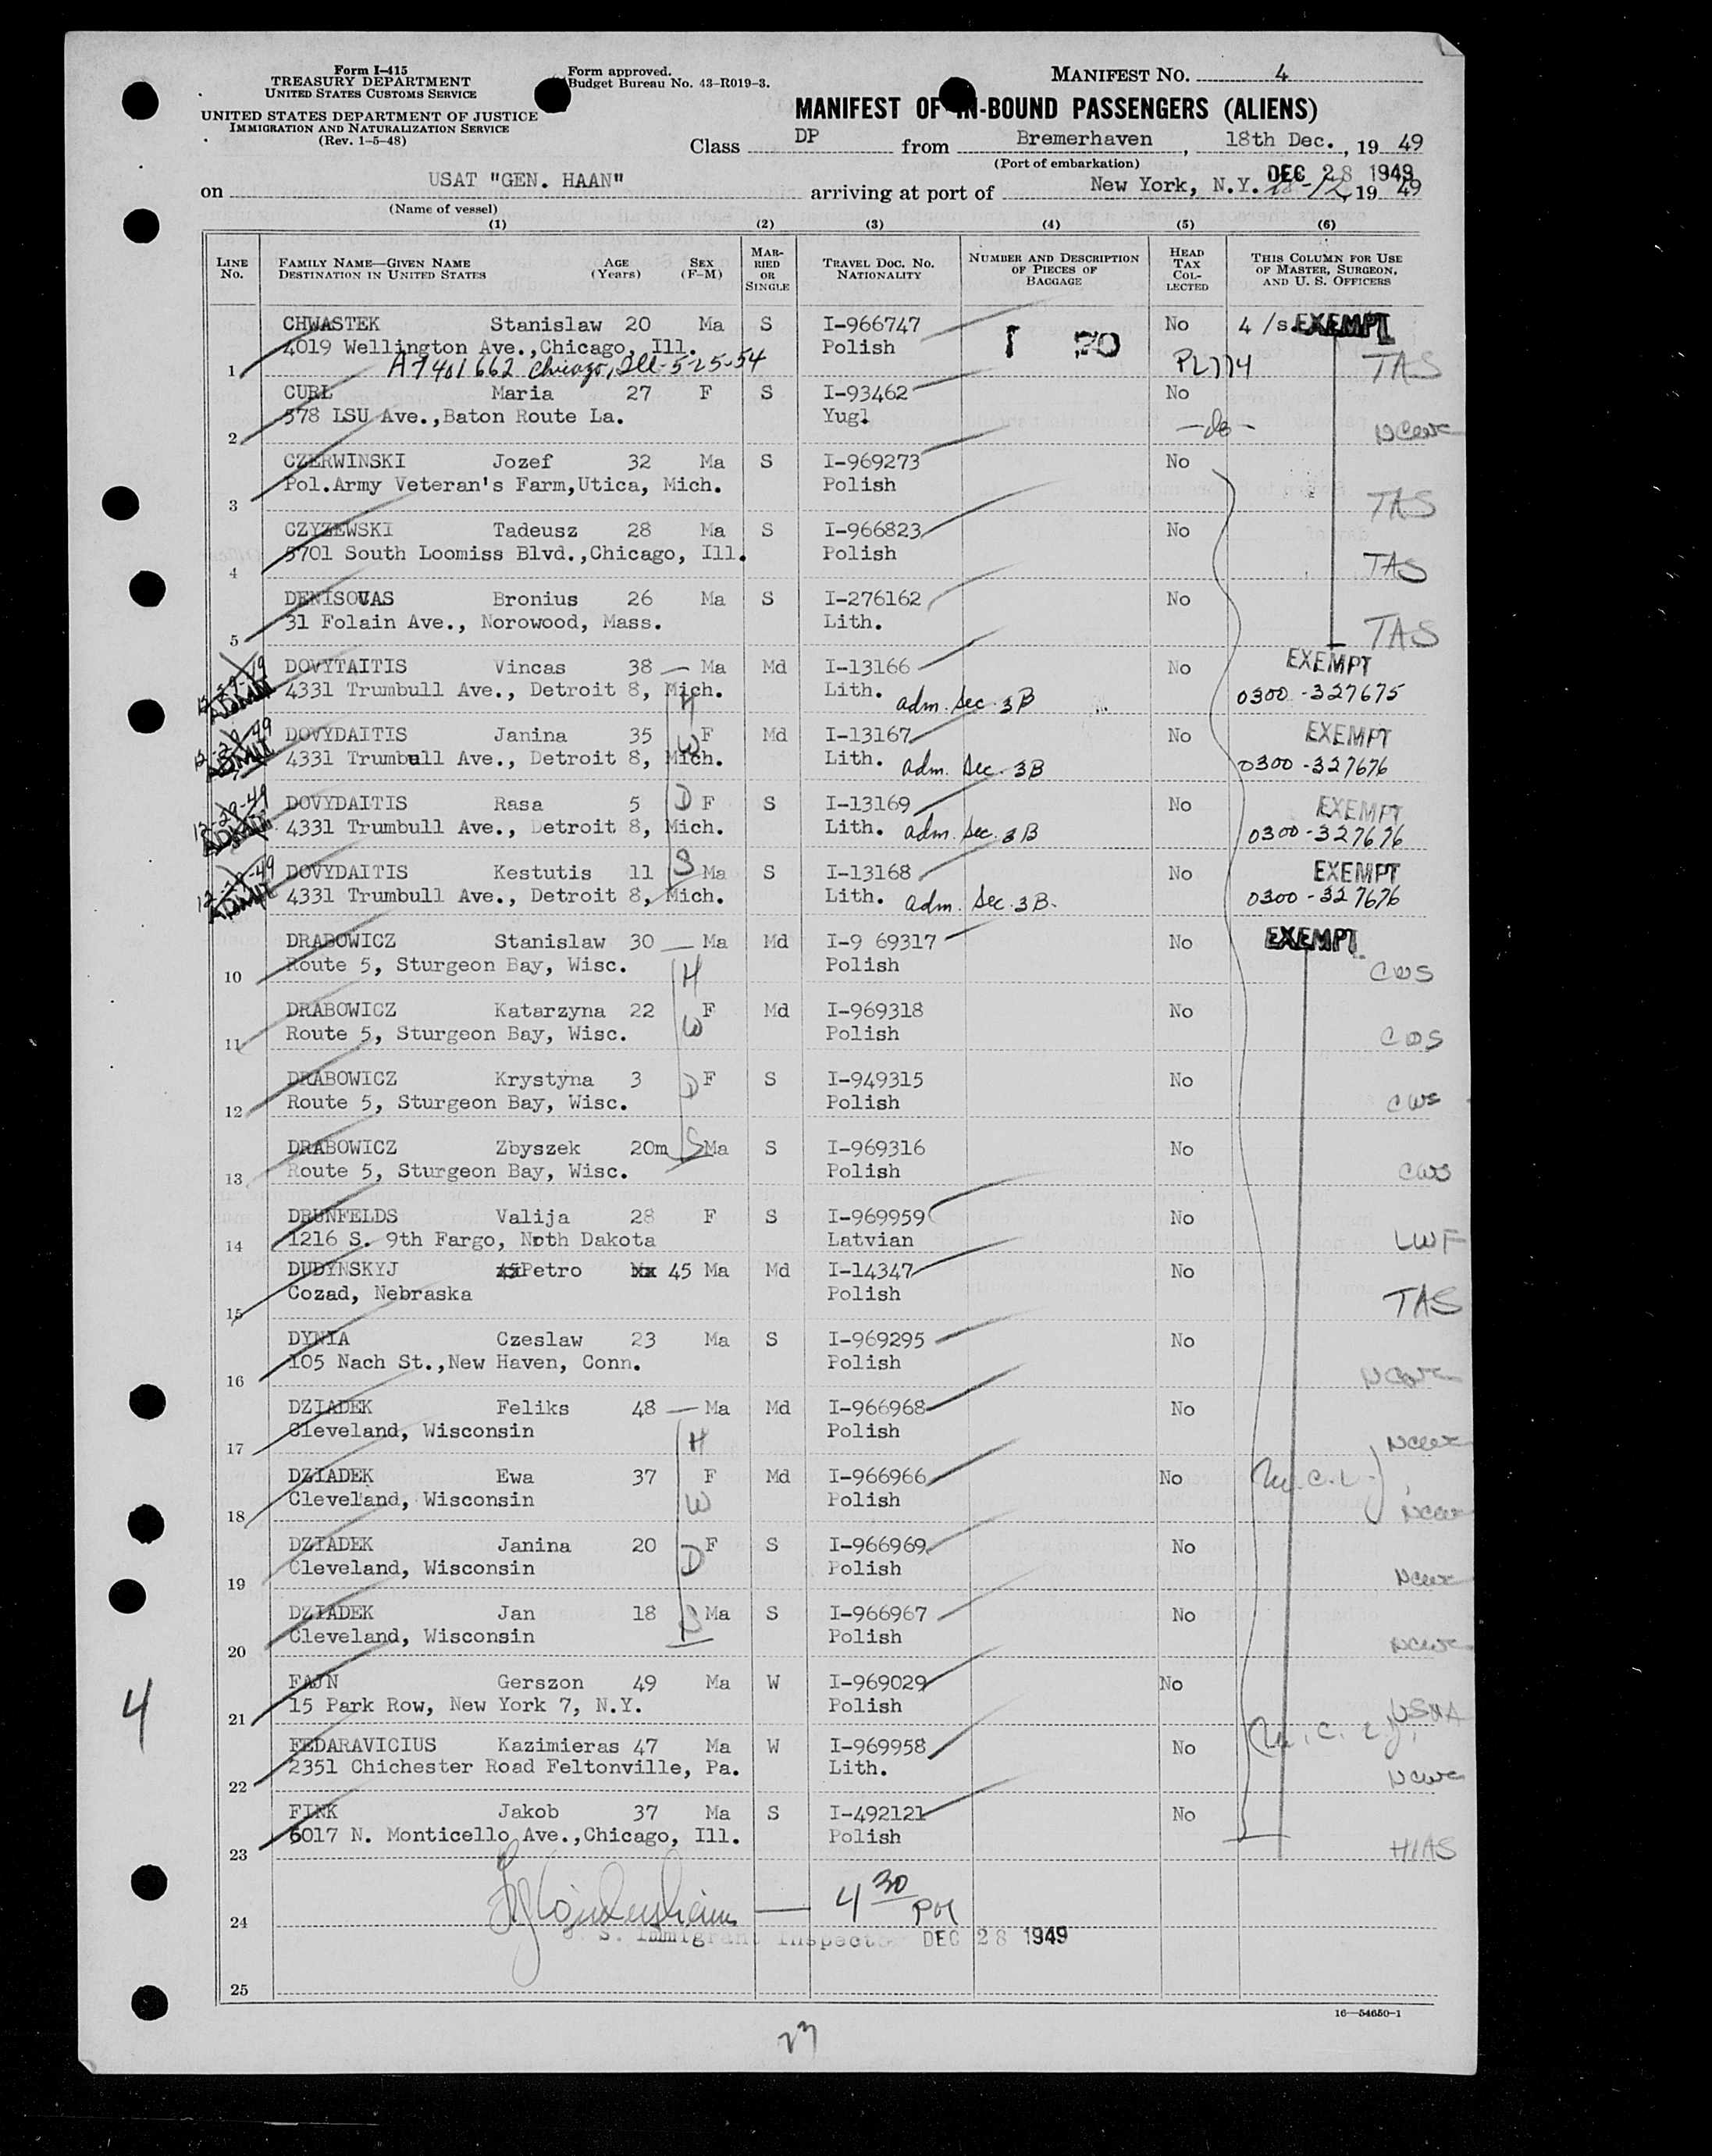 Form I-415
TREASURY DEPARTMENT
UNITED STATES CUSTOMS SERVICE
UNITED STATES DEPARTMENT OF JUSTICE
IMMIGRATION AND NATURALIZATION SERVICE
(Rev. 1-5-48)
Form approved.
Budget Bureau No. 43-R019-3.
MANIFEST NO. 4
MANIFEST OF IN-BOUND PASSENGERS (ALIENS)
Class DP from Bremerhaven, 18th Dec., 19 49
(Port of embarkation)
DEC 28 1949
on USAT "GEN. HAAN" arriving at port of New York, N.Y. 28-12, 19 49
(Name of vessel)
(1) (2) (3) (4) (5) (6)
LINE No. FAMILY NAME—GIVEN NAME DESTINATION IN UNITED STATES AGE (Years) SEX (F-M) MARRIED OR SINGLE TRAVEL DOC. NO. NATIONALITY NUMBER AND DESCRIPTION OF PIECES OF BAGGAGE HEAD TAX COLLECTED THIS COLUMN FOR USE OF MASTER, SURGEON, AND U. S. OFFICERS
CHWASTEK Stanislaw 20 Ma S I-966747 No 4 /s EXEMPT
4019 Wellington Ave.,Chicago, Ill. Polish 1 20
1 A7401662 Chicago, Ill-5-25-54 PL774 TAS
CURL Maria 27 F S I-93462 No
578 LSU Ave.,Baton Route La. Yugl
2 -do- NCWC
CZERWINSKI Jozef 32 Ma S I-969273 No
Pol.Army Veteran's Farm,Utica, Mich. Polish
3 TAS
CZYZEWSKI Tadeusz 28 Ma S I-966823 No
5701 South Loomiss Blvd.,Chicago, Ill. Polish
4 TAS
DENISOVAS Bronius 26 Ma S I-276162 No
31 Folain Ave., Norowood, Mass. Lith.
5 TAS
DOVYTAITIS Vincas 38 — Ma Md I-13166 No EXEMPT
12-29-49 ADMIT 4331 Trumbull Ave., Detroit 8, Mich. H Lith. adm. Sec. 3B 0300-327675
DOVYDAITIS Janina 35 F Md I-13167 No EXEMPT
12-29-49 ADMIT 4331 Trumbull Ave., Detroit 8, Mich. W Lith. adm. Sec. 3B 0300-327676
DOVYDAITIS Rasa 5 D F S I-13169 No EXEMPT
12-29-49 ADMIT 4331 Trumbull Ave., Detroit 8, Mich. Lith. adm. Sec. 3B 0300-327676
DOVYDAITIS Kestutis 11 S Ma S I-13168 No EXEMPT
12-29-49 ADMIT 4331 Trumbull Ave., Detroit 8, Mich. Lith. adm. Sec. 3B. 0300-327676
DRABOWICZ Stanislaw 30 — Ma Md I-9 69317 No EXEMPT
Route 5, Sturgeon Bay, Wisc. H Polish
10 CWS
DRABOWICZ Katarzyna 22 F Md I-969318 No
Route 5, Sturgeon Bay, Wisc. W Polish
11 CWS
DRABOWICZ Krystyna 3 D F S I-949315 No
Route 5, Sturgeon Bay, Wisc. Polish
12 CWS
DRABOWICZ Zbyszek 20m S Ma S I-969316 No
Route 5, Sturgeon Bay, Wisc. Polish
13 CWS
DRUNFELDS Valija 28 F S I-969959 No
1216 S. 9th Fargo, Noth Dakota Latvian
14 LWF
DUDYNSKYJ Petro 45 Ma Md I-14347 No
Cozad, Nebraska Polish
15 TAS
DYNIA Czeslaw 23 Ma S I-969295 No
105 Nach St.,New Haven, Conn. Polish
16 NCWC
DZIADEK Feliks 48 — Ma Md I-966968 No
Cleveland, Wisconsin H Polish
17 NCWC
DZIADEK Ewa 37 F Md I-966966 No
Cleveland, Wisconsin W Polish
18 NCWC
DZIADEK Janina 20 F S I-966969 No
Cleveland, Wisconsin D Polish
19 NCWC
DZIADEK Jan 18 S Ma S I-966967 No
Cleveland, Wisconsin Polish
20 NCWC
FAJN Gerszon 49 Ma W I-969029 No
15 Park Row, New York 7, N.Y. Polish
21 USNA
FEDARAVICIUS Kazimieras 47 Ma W I-969958 No
2351 Chichester Road Feltonville, Pa. Lith.
22 NCWC
FINK Jakob 37 Ma S I-492121 No
6017 N. Monticello Ave.,Chicago, Ill. Polish
23 HIAS
24 — 4 30 PM
U. S. Immigrant Inspector DEC 28 1949
25
16—54650-1
4
23